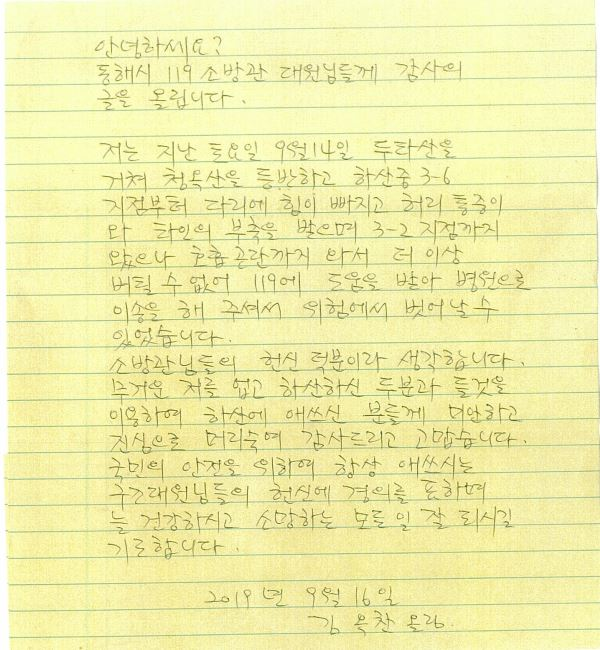 안녕하세요?
동해시 119 소방관 대원님들께 감사의
글을 올립니다.
저는 지난 토요일 9월14일 두타산을
거쳐 청옥산을 등반하고 하산중 3-6
지점부터 다리에 힘이 빠지고 허리 통증이
와 타인의 부축을 받으며 3-2 지점까지
왔으나 호흡 곤란까지 와서 더 이상
버틸 수 없어 119에 도움을 받아 병원으로
이송을 해 주셔서 위험에서 벗어날 수
있었습니다.
소방관님들의 헌신 덕분이라 생각합니다.
무거운 저를 업고 하산하신 두분과 들것을
이용하여 하산에 애쓰신 분들께 미안하고
진심으로 머리숙여 감사드리고 고맙습니다.
국민의 안전을 위하여 항상 애쓰시는
구조대원님들의 헌신에 경의를 표하며
늘 건강하시고 소망하는 모든 일 잘 되시길
기도합니다.
2019년 9월 16일
김 옥찬 올림.